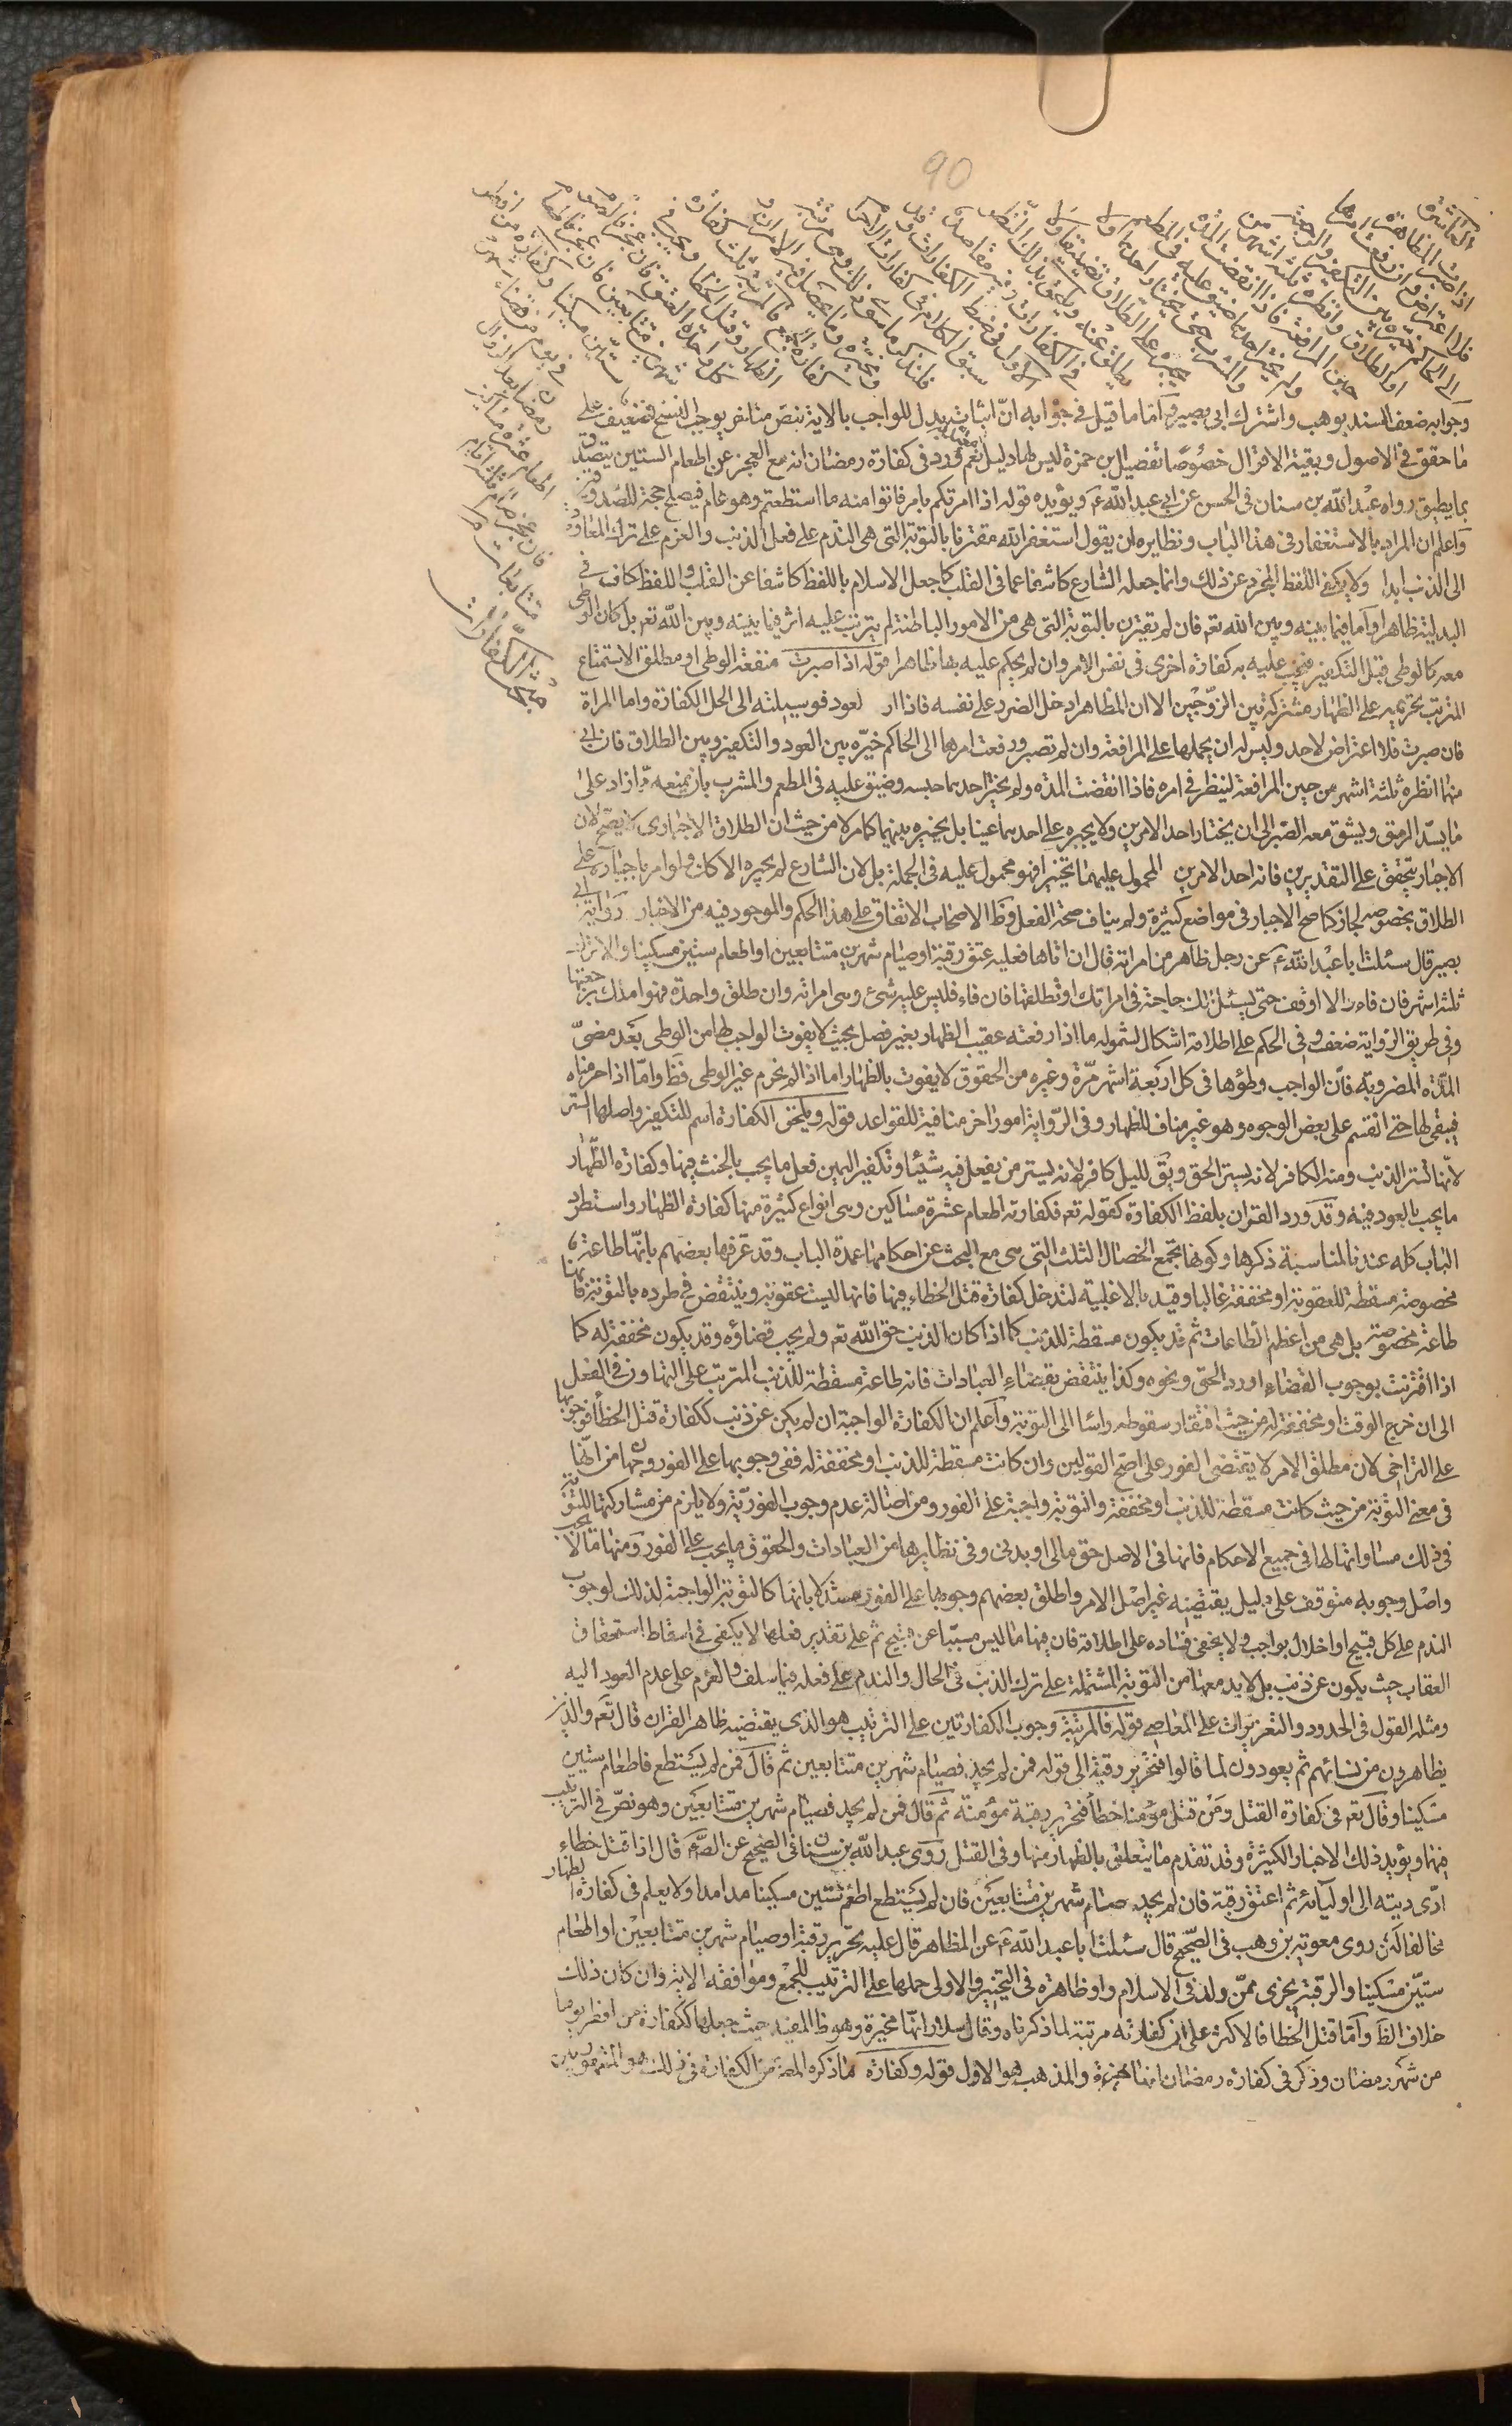 90
العاشرة
اذا صبرت المظاهرة
فلا اعتراض وان رفعت امرها
الى الحاكم خيره بين التكفير والرجعة
او الطلاق وانظره ثلثة اشهر من
حين المرافعة فاذا انقضت المدة
ولم يختر احدهما ضيق عليه في المطعم
والمشرب حتى يختار احدهما ولا
يجبره على الطلاق تضييقا ولا
يطلق عنه ويلحق بذلك النظر
في الكفارات وفيه مقاصد
الاول في ضبط الكفارات وقد
سبق الكلام في كفارات الاحرام
فلنذكر ما سوى ذلك وهي مرتبة
ومخيرة وما يحصل فيه الامران و
كفارة الجمع فالمرتبة ثلث كفارة
الظهار وقتل الخطا ويجب في
كل واحدة العتق فان عجز فالصوم
شهرين متتابعين فان عجز فاطعام
ستين مسكينا وكفارة من افطر
في يوم من قضاء شهر
رمضان بعد الزوال
اطعام عشرة مساكين
فان عجز صام ثلثة ايام
متتابعات
وجوابه ضعف السند بوهب واشتراك ابي بصير واما ما قيل في جوابه انّ اثبات بدل للواجب بالاية بنصّ متاخر يوجب النسخ فضعيف على
ما حقق في الاصول وبقية الاقوال خصوصا تفصيل بن حمزة ليس لها دليل نعم ورد في كفارة رمضان انه مع العجز عن اطعام الستين يتصدق
بما يطيق رواه عبد الله بن سنان في الحسن عن ابي عبد الله ع ويؤيده قوله اذا امرتكم بامر فاتوا منه ما استطعتم وهو عام فيصلح حجة للصدوقين
واعلم ان المراد بالاستغفار في هذا الباب ونظايره ان يقول استغفر الله مقترنا بالتوبة التي هي الندم على فعل الذنب والعزم على ترك المعاودة
الى الذنب ابدا ولا يكفي اللفظ المجرد عن ذلك وانما جعله الشارع كاشفا عما في القلب كما جعل الاسلام باللفظ كاشفا عن القلب واللفظ كاف في
البدلية ظاهرا واما فيما بينه وبين الله تعه فان لم يقترن بالتوبة التي هي من الامور الباطنة لم يترتب عليه اثر فيما بينه وبين الله تعه بل كان الوطي
معه كالوطي قبل التكفير فيجب عليه به كفارة اخرى في نفس الامر وان لم يحكم عليه بها ظاهرا قوله اذا صبرت منفعة الوطي او مطلق الاستمتاع
المترتب تحريمه على الظهار مشتركة بين الزوجين الا ان المظاهر ادخل الضرر على نفسه فاذا ار لعود فوسيلته الى الحل الكفارة واما المراة
فان صبرت فلا اعتراض لاحد وليس له ان يحملها على المرافعة وان لم تصبر ورفعت امرها الى الحاكم خيّره بين العود والتكفير وبين الطلاق فان ابى
منها انظره ثلثة اشهر من حين المرافعة لينظر في امره فاذا انقضت المدة ولم يختر احدهما حبسه وضيق عليه في المطعم والمشرب بان يمنعه مما زاد على
ما يسد الرمق ويشق معه الصبر الى ان يختار احد الامرين ولا يجبره على احدهما عينا بل يخيره بينهما كما مر لا من حيث ان الطلاق الاجباري لا يصح لان
الاجبار يتحقق على التقديرين فانه احد الامرين المحمول عليهما تخييرا فهو محمول عليه في الجملة بل لان الشارع لم يجبره الا كان ولو امر باجباره على
الطلاق بخصوصه لجاز كما صح الاجبار في مواضع كثيرة ولم يناف صحة الفعل وظ الاصحاب الاتفاق على هذا الحكم والموجود فيه من الاخبار رواية ابي
بصير قال سئلت ابا عبد الله ع عن رجل ظاهر من امراته قال ان اتاها فعليه عتق رقبة او صيام شهرين متتابعين او اطعام ستين مسكينا والا ترك
ثلثة اشهر فان فاء والا اوقف حتى يسئل لك حاجة في امراتك او تطلقها فان فاء فليس عليه شئ وهي امراته وان طلق واحدة فهو املك برجعتها
وفي طريق الرواية ضعف وفي الحكم على اطلاقه اشكال لشموله ما اذا رفعته عقيب الظهار بغير فصل بحيث لا يفوت الواجب لها من الوطي بعد مضيّ
المدة المضروبة فان الواجب وطؤها في كل اربعة اشهر مرّة وغيره من الحقوق لا يفوت بالظهار اما اذا لم نحرم غير الوطي فظ واما اذا حرمناه
فيبقى لها حق القسم على بعض الوجوه وهو غير مناف للظهار وفي الرواية امور اخر منافية للقواعد قوله ويلحق الكفارة اسم للتكفير واصلها الستر
لانها تستر الذنب ومنه الكافر لانه يستر الحق ويق لليل كافر لانه يستر من يفعل فيه شيئا وتكفير اليمين فعل ما يجب بالحنث فيها وكفارة الظهار
ما يجب بالعود فيه وقد ورد القران بلفظ الكفارة كقوله تعه فكفارته اطعام عشرة مساكين وهي انواع كثيرة منها كفارة الظهار واستطرد
الباب كله عندنا لمناسبة ذكرها وكونها تجمع الخصال الثلث التي هي مع البحث عن احكامها عمدة الباب وقد عرّفها بعضهم بانها طاعة
مخصوصة مسقطة للعقوبة او مخففة غالبا وقيد بالاغلبية لتدخل كفارة قتل الخطاء فيها فانها ليست عقوبة وينتقض في طرده بالتوبة فانها
طاعة مخصوصة بل هي من اعظم الطاعات ثم قد يكون مسقطة للذنب كما اذا كان الذنب حق الله تعه ولم يجب قضاؤه وقد يكون مخففة له كما
اذا اقترنت بوجوب القضاء او رد الحق ونحوه وكذا ينتقض بقضاء العبادات فانه طاعة مسقطة للذنب المترتب على التهاون في الفعل
الى ان خرج الوقت او مخففة له من حيث افتقار سقوطه راسا الى التوبة واعلم ان الكفارة الواجبة ان لم يكن عن ذنب ككفارة قتل الخطأ فوجوبها
على التراخي لان مطلق الامر لا يقتضي الفور على اصح القولين وان كانت مسقطة للذنب او مخففة له ففي وجوبها على الفور وجهان من انها
في معنى التوبة من حيث كانت مسقطة للذنب او مخففة والتوبة واجبة على الفور ومن اصالة عدم وجوب الفورية ولا يلزم من مشاركتها للتوبة
في ذلك مساواتها لها في جميع الاحكام فانها في الاصل حق مالي او بدني وفي نظايرها من العبادات والحقوق ما يجب على الفور ومنها ما لا يجب
واصل وجوبه متوقف على دليل يقتضيه غير اصل الامر واطلق بعضهم وجوبها على الفور مستدلا بانها كالتوبة الواجبة لذلك لوجوب
الندم على كل قبيح او اخلال بواجب ولا يخفى فساده على اطلاقه فان فيها ما ليس مسببا عن قبيح ثم على تقدير فعلها لا يكفي في اسقاط استحقاق
العقاب حيث يكون عن ذنب بل لا بد معها من التوبة المشتملة على ترك الذنب في الحال والندم على فعله فيما سلف والعزم على عدم العود اليه
ومثله القول في الحدود والتعزيرات على المعاصي قوله فالمرتبة وجوب الكفارتين على الترتيب هو الذي يقتضيه ظاهر القران قال تعه والذين
يظاهرون من نسائهم ثم يعودون لما قالوا فتحرير رقبة الى قوله فمن لم يجد فصيام شهرين متتابعين ثم قال فمن لم يستطع فاطعام ستين
مسكينا وقال تعه في كفارة القتل ومن قتل مؤمنا خطأ فتحرير رقبة مؤمنة ثم قال فمن لم يجد فصيام شهرين متتابعين وهو نصّ في الترتيب
فيهما ويؤيد ذلك الاخبار الكثيرة وقد تقدم ما يتعلق بالظهار منها وفي القتل روى عبد الله بن سنان في الصحيح عن الصّ قال اذا قتل خطاء
ادّى ديته الى اوليائه ثم اعتق رقبة فان لم يجد صام شهرين متتابعين فان لم يستطع اطعم ستين مسكينا مدا مدا ولا يعلم في كفارة الظهار
مخالفا لكن روى معوية بن وهب في الصحيح قال سئلت ابا عبد الله ع عن المظاهر قال عليه تحرير رقبة او صيام شهرين متتابعين او اطعام
ستين مسكينا والرقبة يجزى ممن ولد في الاسلام واو ظاهرة في التخيير والاولى حملها على الترتيب للجمع وموافقة الاية وان كان ذلك
خلاف الظ واما قتل الخطا فالاكثر على ان كفارته مرتبة لما ذكرناه وقال سلار انها مخيرة وهو ظ المفيد حيث جعلها ككفارة من افطر يوما
من شهر رمضان وذكر في كفارة رمضان انها مخيرة والمذهب هو الاول قوله وكفارة ما ذكره المصّ من الكفارة في ذلك هو المشهور بين